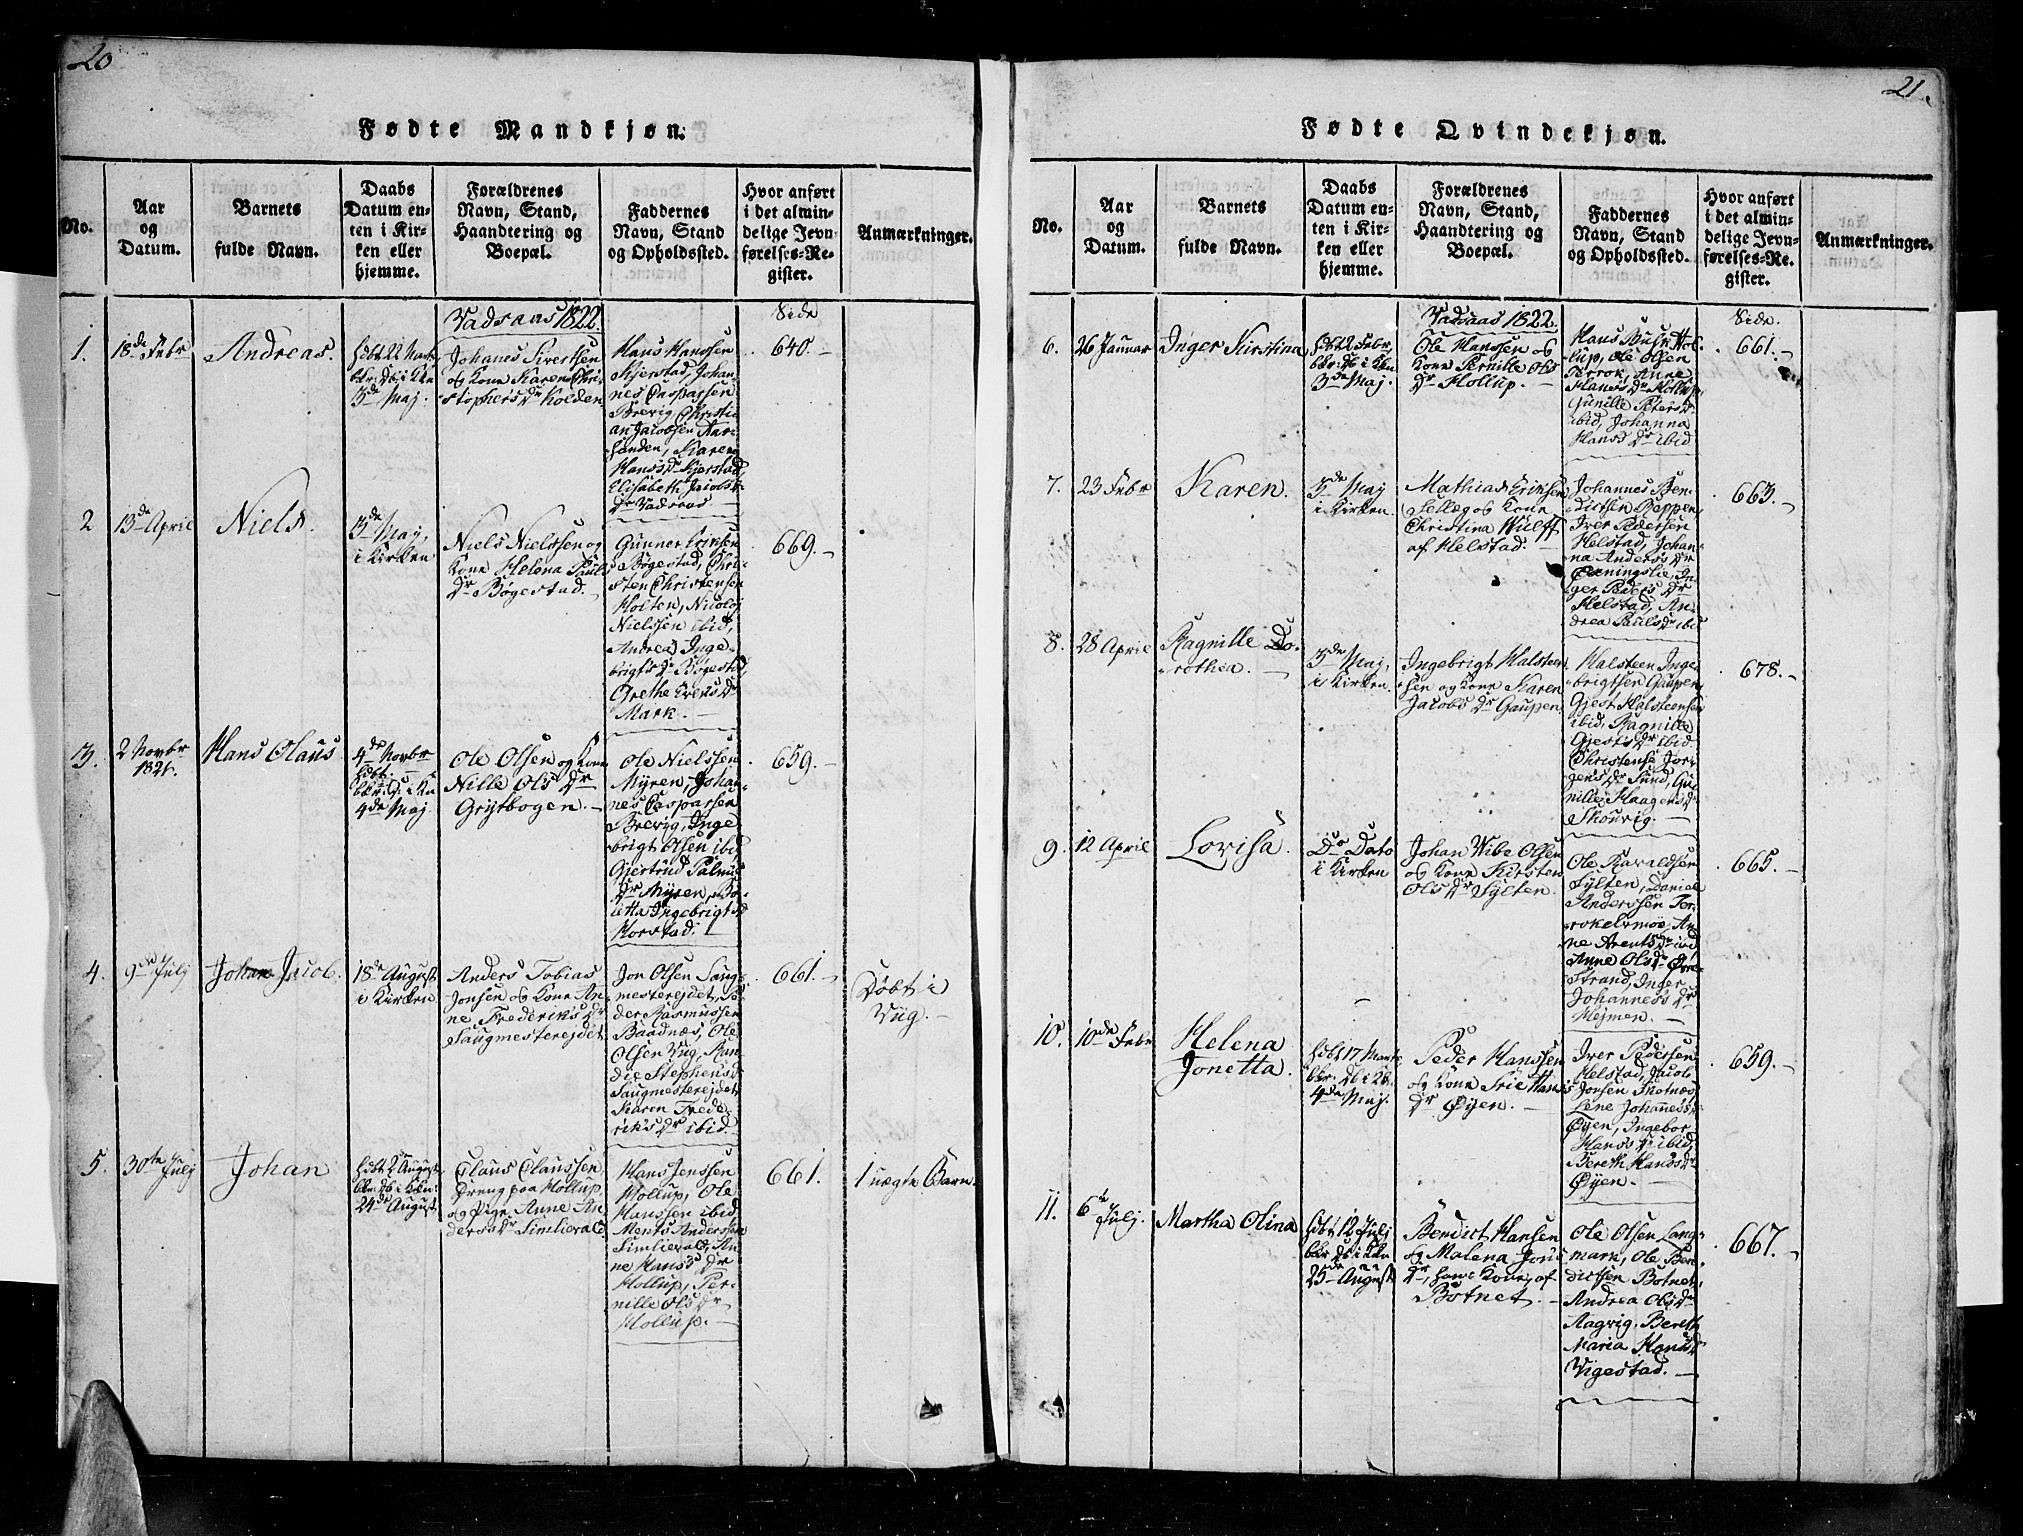 20
Fødte Mandkjøn.
No.
Aar
og
Datum.
Barnets
fulde Navn.
Daabs
Datum en-
ten i Kir-
ken eller
hjemme.
Forældrenes
Navn, Stand,
Haandtering og
Boepæl.
Faddernes
Navn, Stand
og Opholdssted.
Hvor anført
i det almin-
delige Jevn-
førelses-Re-
gister.
Anmærkninger.
Vadsaas 1822.
Side
1.
18de Febr
Andreas.
3de Maj.
Johanes Sivertsen
og Kone Karen Chri-
stophers Dr Holden
Hans Hanssen
Kjerstad, Johan-
nes Caspassen
Brevig, Christi-
an Jacobsen
Karen
Hans Dr Kjerstad,
Elisabeth Jacobs
Dr Vadsaas
640.
2
13de April
Niels.
3de Maj,
i Kirken
Niels Nielssen og
Kone Helena Pauls
Dr Bøgestad.
Gunner
Bøgestad, Chri-
sten Christensen
Holten, Nicolaj
Nielssen ibid,
Andrea Inge-
brigts Dr Bøgestad,
Grethe Evens Dr
Mark.
669.
3.
2 Novbr
1821.
Hans Olaus
4de Novbr
4de Maj
Ole Olsen og Kone
Nille Ols Dr
Grytbogen.
Ole Nielssen
Myren, Johan-
nes Caspassen
Brevig, Inge-
brigt Olsen ibid,
Gjertrud Palmus
Dr Myren,
Ingebrigts
Horstad.
659.
4.
9de Julj
Johan Jacob.
18de August
i Kirken
Anders Tobias
Jonsen og Kone An-
ne Frederiks Dr
Saugmesterejdet
Jon Olsen Saug-
mesterejdet, Pe-
der Rasmussen
Baadnæs, Ole
Olsen Vug, Ran-
die Stephens Dr
Saugmesterejdet
Karen Frede-
riks Dr ibid.
661.
Døbt i
Vug.
5.
30te Julj
Johan
24de August
Claus Claussen,
Dreng paa Hollup,
og Pige Anne An-
ders Dr Simlierald.
Hans Jenssen
Hollup, Ole
Hanssen ibid
Ments Anderssen
Simlierald, An-
ne Hans Dr
Hollup, Per-
nille Ols Dr
Hollup.
661.
1 uægte Barn.
21.
Fødte Qvindekjøn.
No.
Aar
og
Datum.
Barnets
fulde Navn.
Daabs
Datum en-
ten i Kir-
ken eller
hjemme.
Forældrenes
Navn, Stand,
Haandtering og
Boepæl.
Faddernes
Navn, Stand
og Opholdssted.
Hvor anført
i det almin-
delige Jevn-
førelses-Re-
gister.
Anmærkninger.
Vadsaas 1822.
Side.
6.
26 Januar
Inger Kirstina
3de Maj.
Ole Hanssen og
Kone Pernille Ols
Dr Hollup.
Hans Busk Hol-
lup, Ole Olsen
Terrok, Anne
Hans Dr Hollup,
Gunille Peters Dr
ibid, Johanna
Hans Dr ibid
661.
7.
23 Febr
Karen.
3de Maj
i Kirken
Mathias Eriksen
Selleg og Kone
Christina Wulff
af Helstad.
Johannes Ben-
dictsen Reppen,
Iver Pedersen
Helstad, Johan-
na Anders Dr
In-
ger Peders Dr
Helstad, An-
drea Pauls Dr ibid
663.
8.
28 April
Ragnille Do-
rothea.
3de Maj,
i Kirken.
Ingebrigt Halsteen-
sen og Kone Karen
Jacobs Dr Gaupen.
Halsteen Inge-
brigtsen Gaupen
Gjest Halsteensen
ibid, Ragnille
Gjests Dr ibid
Christense Jør-
gens Dr Sund, Gu-
nille Haagens Dr
Skourig.
678.
9.
12 April
Lovisa.
Do Dato
i Kirken
Johan Wibe Olsen
og Kone Kirsten
Ols Dr Sylten.
Ole Haraldsen
Sylten, Daniel
Anderssen Ter-
rokelvmøe, An-
ne Arents Dr ibid
Anne Ols Dr Øvre-
Strand, Inger
Johannes Dr
Hejmen.
665.
10.
10de Febr
Helena
Jonetta.
4de Maj.
Peder Hanssen
og Kone Srie Hans
Dr Øyen.
Iver Pedersen
Helstad, Jacob
Jonsen Skotnæs,
Lene Johannes Dr
Øyen, Ingebor
Hans Dr ibid,
Bereth Hans Dr
Øyen.
659.
11.
6te Julj.
Martha Olina
25de August
Bendict Hansen
og Malena Jons
Dr, hans Kone, af
Botnet.
Ole Olsen Lang-
mark, Ole Ben-
dictsen Botnet,
Andrea Ols Dr
Aagvig, Bereth
Maria Hans Dr
Vigestad.
667.